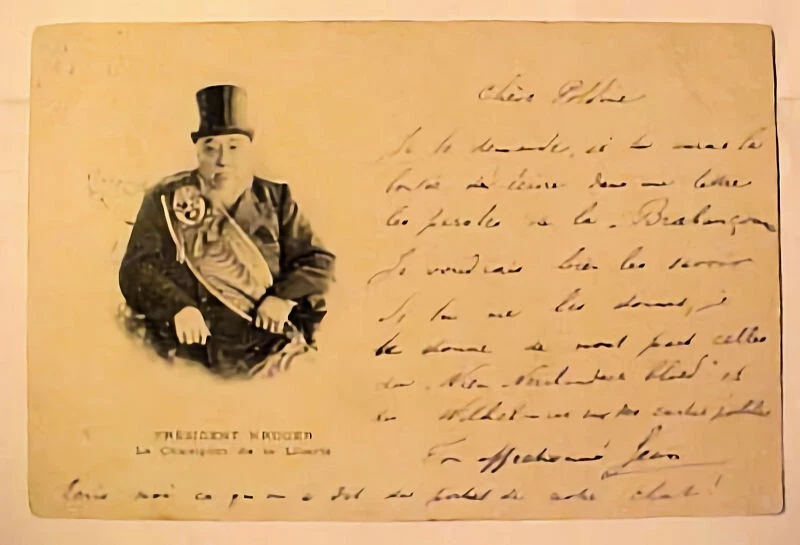 Chère
Je te demande, si tu aurais la
bonté de écrire dans une lettre
les paroles de la "Brabançonne
Je voudrais bien les savoir
Si tu me les donnes, je
te donne de mon part celles
du " Neerlandsch bloed" et
du Wilhelmus sur des cartes postales
Ton affectionné Jean
PRÉSIDENT KRUGER
Le Champion de la Liberté
moi ce qu'on a dit du de notre chat!